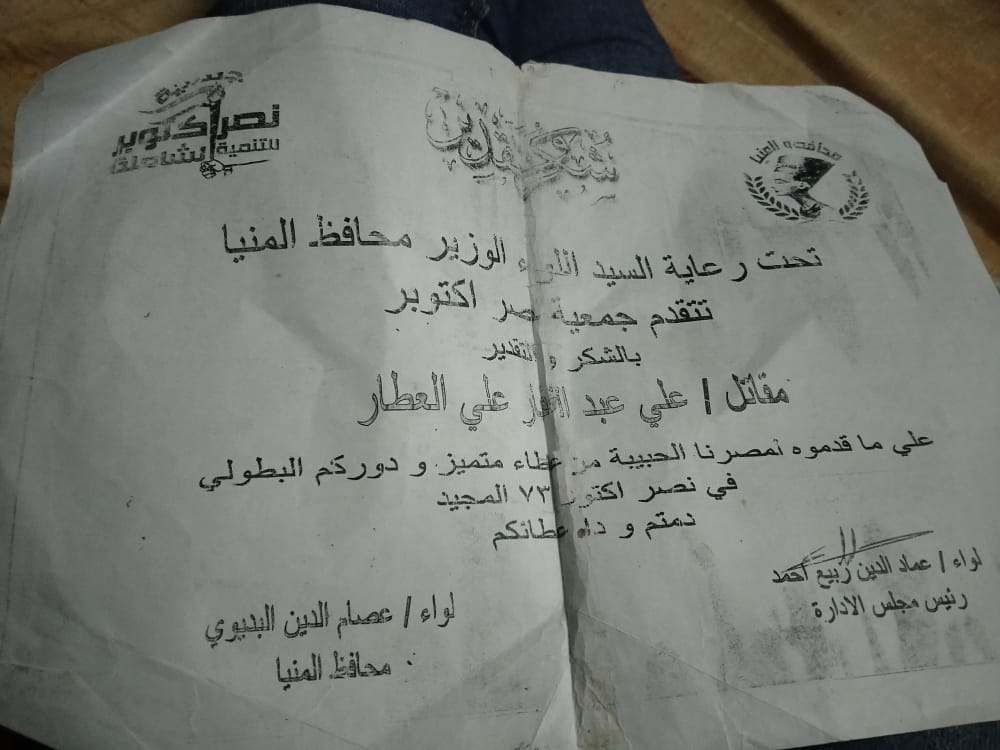 جمعية
نصر اكتوبر
للتنمية الشاملة
شكر وتقدير
محافظة المنيا
تحت رعاية السيد اللواء الوزير محافظ المنيا
تتقدم جمعية نصر اكتوبر
بالشكر و التقدير
مقاتل / علي عبد علي العطار
علي ما قدموه لمصرنا الحبيبة من عطاء متميز و دوركم البطولي
في نصر اكتوبر ٧٣ المجيد
دمتم و دام عطائكم
لواء / عماد الدين ربيع احمد
رئيس مجلس الادارة
لواء / عصام الدين البديوي
محافظ المنيا